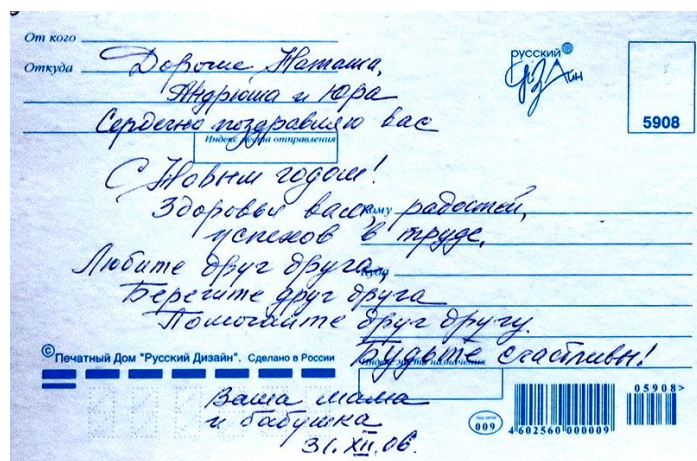 От кого
Откуда
Дорогие Наташа,
Андрюша и Юра
Сердечно поздравляю вас
Индекс места отправления
С Новым годом!
Здоровья вам, радостей,
Кому
успехов в труде.
Любите друг друга,
Куда
Берегите друг друга
Помогайте друг другу.
Будьте счастливы!
Индекс места назначения
Ваша мама
и бабушка
31.XII.06.
русский
дизайн
5908
© Печатный Дом "Русский Дизайн". Сделано в России
009
05908>
4 602560 000009